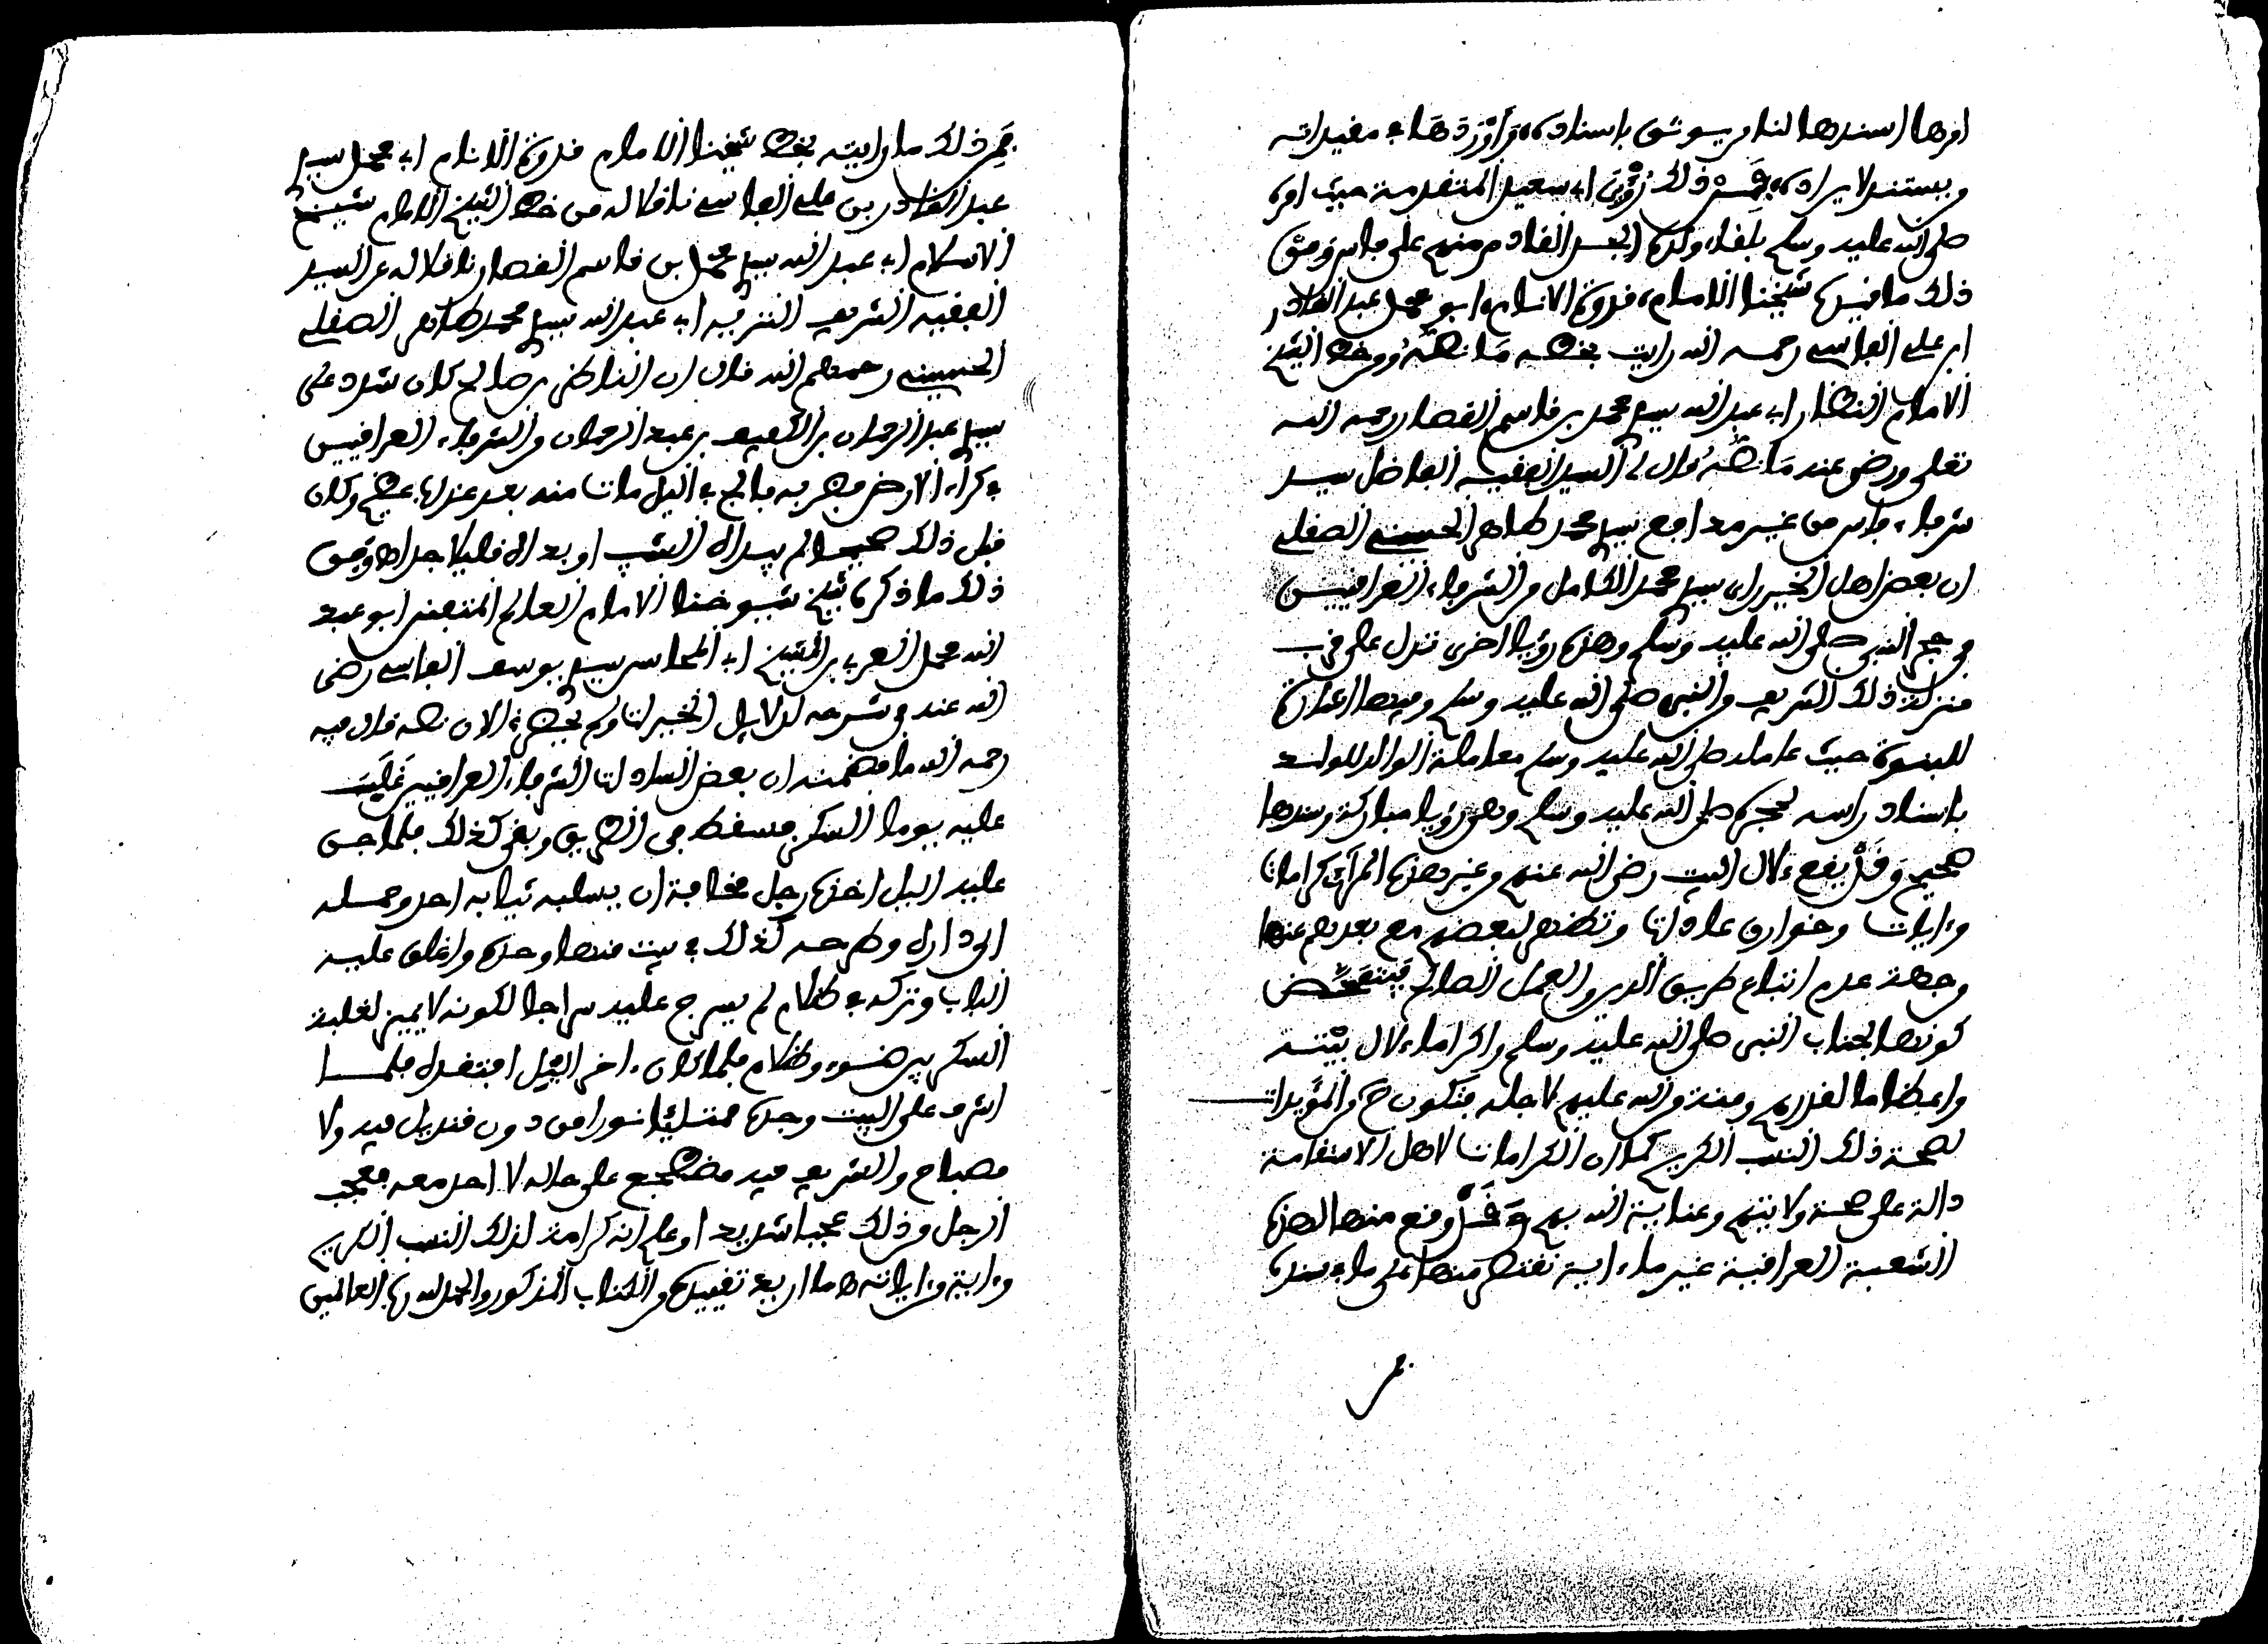 او ها اسندها لنا من يوثق باسناده، او اوردها في مفيداته
ويستند لايراده، فمن ذلك رؤيا ابي سعيد المتقدمة حيث امره
صلى الله عليه وسلم بلقاء ولده الجد القادم منهم على فاس ومن
ذلك ما قيده شيخنا الامام، قدوة الانام، ابو محمد عبد القادر
ابن علي الفاسي رحمه الله رايت بخطه ما نصه ومن خط الشيخ
الامام النظار ابي عبد الله سيدي محمد بن قاسم القصار رحمه الله
تعلى ورضي عنه ما نصه قال لي السيد الفقيه الفاضل سيد
شرفاء فاس من غير مدافع سيدي محمد طاهر الحسيني الصقلي
ان بعض اهل الخير راى سيدي محمد الكامل من الشرفاء العراقيين
في حجر النبي صلى الله عليه وسلم وهذه رؤيا اخرى تدل على قرب
منزلة ذلك الشريف من النبي صلى الله عليه وسلم وفيها اشارة
للبنوة حيث عامله صلى الله عليه وسلم معاملة الوالد للولد
باسناد راسه لحجره صلى الله عليه وسلم وهي رؤيا مباركة وسندها
صحيح وقد يقع لال البيت رضي الله عنهم من غير هذه المرآى كرامات
وءايات وخوارق عادات وتظهر لبعضهم مع بعدهم عنها
من جهة عدم اتباع طريق الدين والعمل الصالح فيتمحض
كونها لجناب النبي صلى الله عليه وسلم واكراما لال بيته
واعظاما لقدرهم ومنة من الله عليهم لاجله فتكون ح من المؤيدات
لصحة ذلك النسب الكريم كما ان الكرامات لاهل الاستقامة
دالة على صحة ولايتهم وعناية الله بهم وقد وقع منها لهذه
الشعبة العراقية غير ما ءاية نقتصر منها على ما سنده
فمن
فمن ذلك ما رايته بخط شيخنا الامام قدوة الانام ابي محمد سيدي
عبد القادر بن علي الفاسي ناقلا له من خط الشيخ الامام شيخ
الاسلام ابي عبد الله سيدي محمد بن قاسم القصار ناقلا له عن السيد
الفقيه الشريف النزيه ابي عبد الله سيدي محمد طاهر الصقلي
الحسيني رحمهم الله قال ان الناظر بن صالح كان شد على
سيدي عبد الرحمان بن الكفيف بن عبد الرحمان من الشرفاء العراقيين
في كراء الارض فضربه فالج في اليل مات منه بعد عزله بمضي وكان
قبل ذلك صحيحا لم يبدله الشيب او بدا له قليلا جدا ومن
ذلك ما ذكره شيخ شيوخنا الامام العالم المتفنن ابو عبد
الله محمد العربي بن الشيخ ابي المحاسن سيدي يوسف الفاسي رضي
الله عنه في شرحه لدلايل الخيرات ولم يحضرني الان نصه قال فيه
رحمه الله ما مضمنه ان بعض السادات الشرفاء العراقيين غلب
عليه يوما السكر فسقط في الطريق وبقي كذلك فلما جن
عليه اليل اخذه رجل مخافة ان يسلبه ثيابه احد وحمله
الى داره وطرحه كذلك في بيت منها وحده واغلق عليه
الباب وتركه في ظلام لم يسرج عليه سراجا لكونه لا يميز لغلبة
السكر بين ضوء وظلام فلما كان ءاخر اليل افتقده فلما
اشرف على البيت وجده ممتلئا نورا من دون قنديل فيه ولا
مصباح والشريف فيه مضطجع على حاله لا احد معه فعجب
الرجل من ذلك عجبا شديدا وعلم انه كرامة لذلك النسب الكريم
وءاية من ءاياته ها ما اريد تقييده من الكتاب المذكور والحمد لله رب العالمين